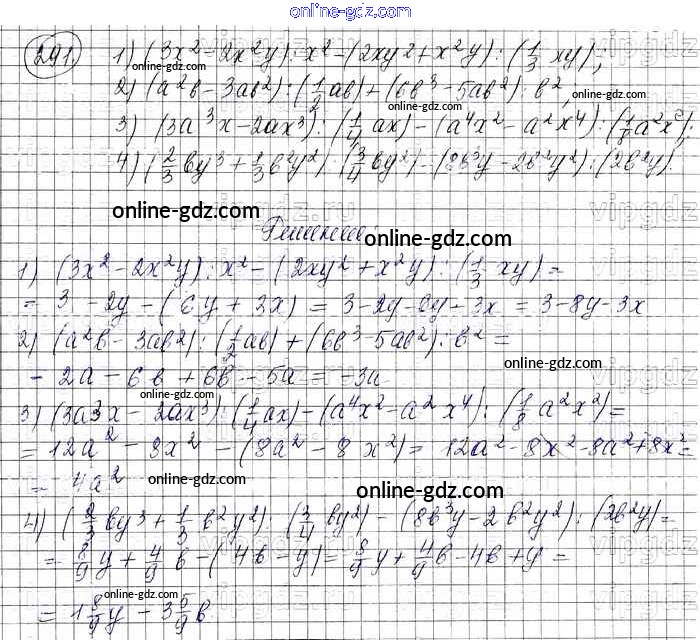 online-gdz.com
291. 1) (3x² - 2x²y) : x² - (2xy² + x²y) : (1/3 xy);
2) (a²b - 3ab²) : (1/2 ab) + (6b³ - 5ab²) : b²;
online-gdz.com
3) (3a³x - 2ax³) : (1/4 ax) - (a⁴x² - a²x⁴) : (1/8 a²x²);
4) (2/3 by³ + 1/3 b²y²) : (3/4 by²) - (8b³y - 2b²y²) : (2b²y).
online-gdz.com
Решение:
online-gdz.com
1) (3x² - 2x²y) : x² - (2xy² + x²y) : (1/3 xy) =
online-gdz.com
= 3 - 2y - (6y + 3x) = 3 - 2y - 6y - 3x = 3 - 8y - 3x
2) (a²b - 3ab²) : (1/2 ab) + (6b³ - 5ab²) : b² =
online-gdz.com
- 2a - 6b + 6b - 5a = -3a
online-gdz.com
3) (3a³x - 2ax³) : (1/4 ax) - (a⁴x² - a²x⁴) : (1/8 a²x²) =
= 12a² - 8x² - (8a² - 8x²) = 12a² - 8x² - 8a² + 8x² =
= 4a²
online-gdz.com
online-gdz.com
4) (2/3 by³ + 1/3 b²y²) : (3/4 by²) - (8b³y - 2b²y²) : (2b²y) =
= 8/9 y + 4/9 b - (4b - y) = 8/9 y + 4/9 b - 4b + y =
online-gdz.com
= 1 8/9 y - 3 5/9 b
online-gdz.com